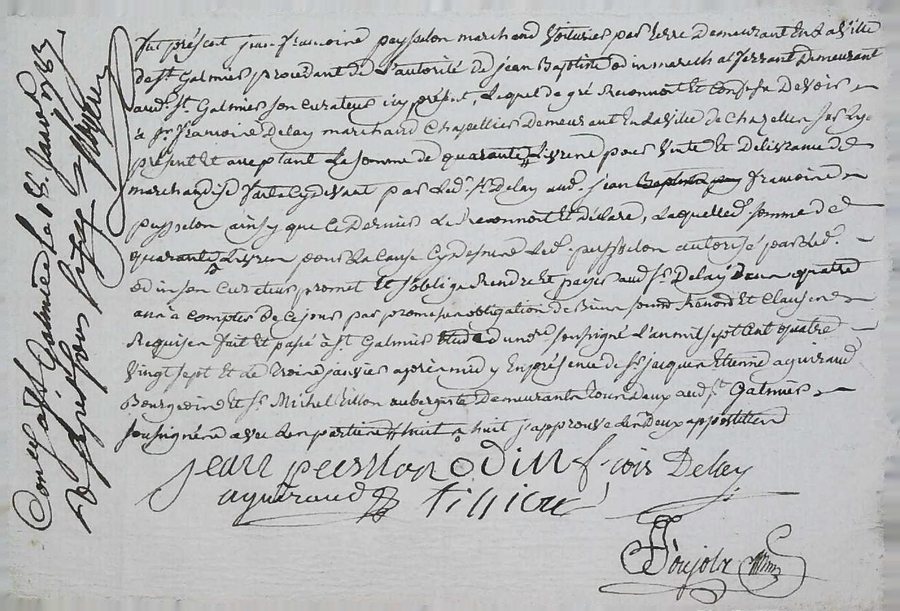 fut présent jean francoine peysselon marchand voiturier par terre demeurant En la Ville
de St. Galmier procédant de l'autorité de jean Baptiste odin marech al ferrant Demeurant
aud. St. Galmier son curateur icy présent, Lequel de gré Reconnoit et confesse Devoir
à Sr. francoine Delay marchand Chapellier Demeurant En la ville de Chazelles icy
présent Et acceptant La somme de quarante Livres pour Vente et Délivrance de
marchandise faite Cy devant par Led. Sr. Delay aud. jean Baptiste francoine
peysselon ainsy que ce Dernier Le Reconnoit Et déclare, Laquelle d. somme de
quarante Livres pour La cause Cy dessus Led. peysselon autorisé par Led.
odin son curateur promet Et s'oblige Rendre et payer aud. Sr. Delay dans quatre
ans à compter de Ce jour par promesse obligation de Biens Renon Et Clauses
Requises fait et passé à St. Galmier Etude d un d. soussigné L'an mil sept cent quatre
vingt sept et Le treize janvier après midy En présence de Sr. jacques Etienne ayguiraud
Bourgeois Et Sr. Michel tillon aubergiste Demeurants Tous deux aud. St. Galmier
soussignés avec Les parties huit à huit j'approuve
jean peisslon odin f. cois Deley
ayguiraud tillion
Poujola
Con.lé à St. Galmier Le 18 janvier 1787